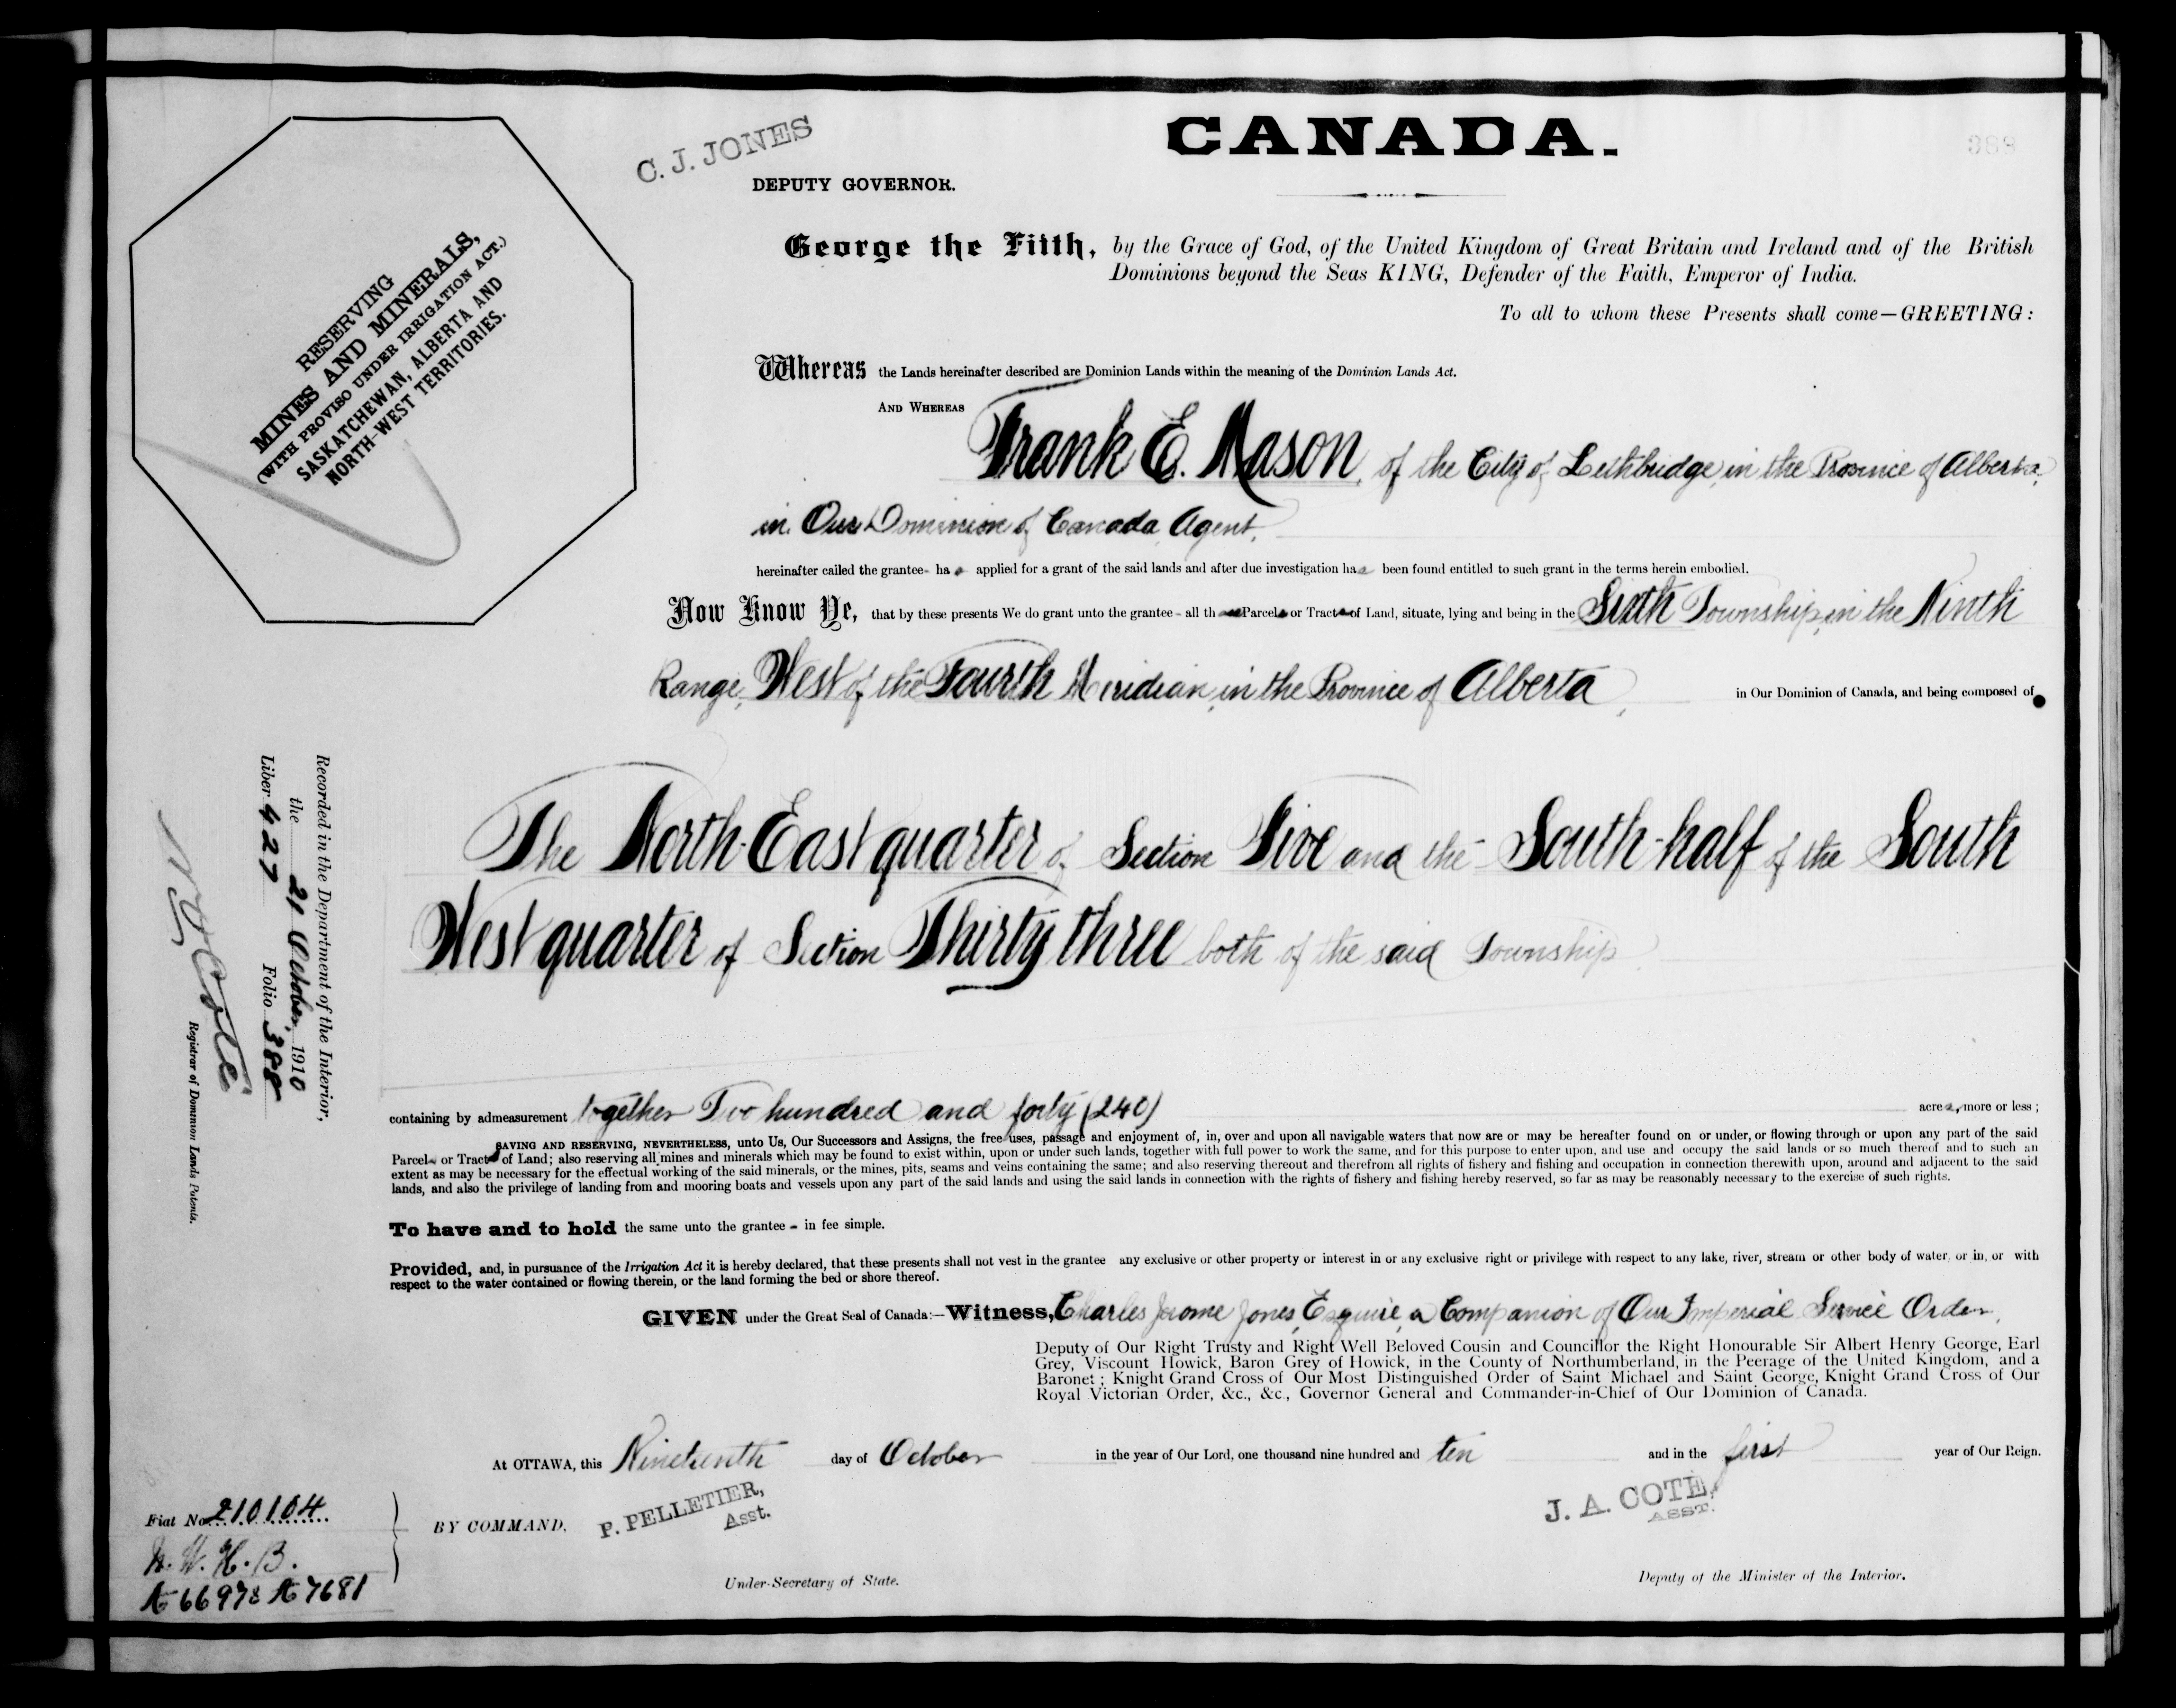 C. J. JONES
CANADA.
388
DEPUTY GOVERNOR.
RESERVING
MINES AND MINERALS,
(WITH PROVISO UNDER IRRIGATION ACT.)
SASKATCHEWAN, ALBERTA AND
NORTH-WEST TERRITORIES.
George the Fifth, by the Grace of God, of the United Kingdom of Great Britain and Ireland and of the British
Dominions beyond the Seas KING, Defender of the Faith, Emperor of India.
To all to whom these Presents shall come—GREETING:
Whereas the Lands hereinafter described are Dominion Lands within the meaning of the Dominion Lands Act.
AND WHEREAS Frank E. Mason, of the City of Lethbridge, in the Province of Alberta,
in Our Dominion of Canada, Agent,
hereinafter called the grantee- has applied for a grant of the said lands and after due investigation has been found entitled to such grant in the terms herein embodied.
Now Know Ye, that by these presents We do grant unto the grantee - all those Parcels or Tracts of Land, situate, lying and being in the Sixth Township, in the Ninth
Range, West of the Fourth Meridian, in the Province of Alberta, in Our Dominion of Canada, and being composed of
The North-East quarter of Section Five and the South-half of the South
West quarter of Section Thirty three both of the said Township.
Recorded in the Department of the Interior,
the 21 October, 1910
Liber 427 Folio 388
N. O. Coté
Registrar of Dominion Lands Patents.
containing by admeasurement together Two hundred and forty (240) acres, more or less;
SAVING AND RESERVING, NEVERTHELESS, unto Us, Our Successors and Assigns, the free uses, passage and enjoyment of, in, over and upon all navigable waters that now are or may be hereafter found on or under, or flowing through or upon any part of the said
Parcels or Tracts of Land; also reserving all mines and minerals which may be found to exist within, upon or under such lands, together with full power to work the same, and for this purpose to enter upon, and use and occupy the said lands or so much thereof and to such an
extent as may be necessary for the effectual working of the said minerals, or the mines, pits, seams and veins containing the same; and also reserving thereout and therefrom all rights of fishery and fishing and occupation in connection therewith upon, around and adjacent to the said
lands, and also the privilege of landing from and mooring boats and vessels upon any part of the said lands and using the said lands in connection with the rights of fishery and fishing hereby reserved, so far as may be reasonably necessary to the exercise of such rights.
To have and to hold the same unto the grantee - in fee simple.
Provided, and, in pursuance of the Irrigation Act it is hereby declared, that these presents shall not vest in the grantee any exclusive or other property or interest in or any exclusive right or privilege with respect to any lake, river, stream or other body of water, or in, or with
respect to the water contained or flowing therein, or the land forming the bed or shore thereof.
GIVEN under the Great Seal of Canada:—Witness, Charles Jerome Jones, Esquire, a Companion of Our Imperial Service Order,
Deputy of Our Right Trusty and Right Well Beloved Cousin and Councillor the Right Honourable Sir Albert Henry George, Earl
Grey, Viscount Howick, Baron Grey of Howick, in the County of Northumberland, in the Peerage of the United Kingdom, and a
Baronet; Knight Grand Cross of Our Most Distinguished Order of Saint Michael and Saint George, Knight Grand Cross of Our
Royal Victorian Order, &c., &c., Governor General and Commander-in-Chief of Our Dominion of Canada.
At OTTAWA, this Nineteenth day of October in the year of Our Lord, one thousand nine hundred and ten and in the first year of Our Reign.
Fiat No. 210104
N. W. H. B.
BY COMMAND,
P. PELLETIER,
Asst.
J. A. COTE,
ASST.
Under-Secretary of State.
Deputy of the Minister of the Interior.